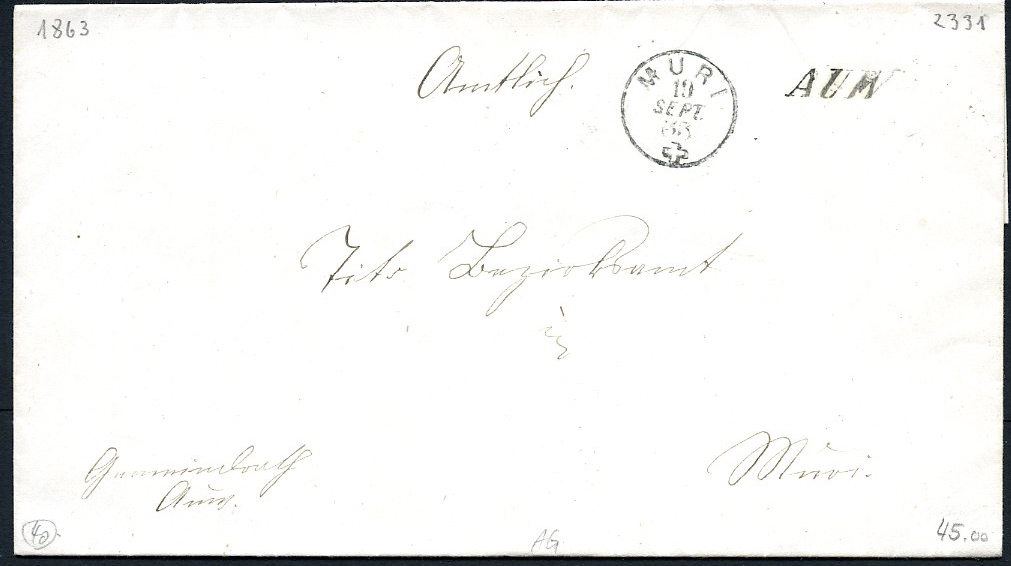 1863
2331
Amtlich.
MURI
19
SEPT.
63
AUW
Titr Bezirksamt
in
Muri.
Gemeindrath
Auw.
40.
AG
45.00